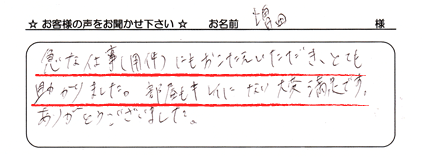 ☆ お客様の声をお聞かせ下さい ☆ お名前 増田 様
急な仕事(用件)にもおこたえいただき、とても
助かりました。部屋もキレイになり大変満足です。
ありがとうございました。